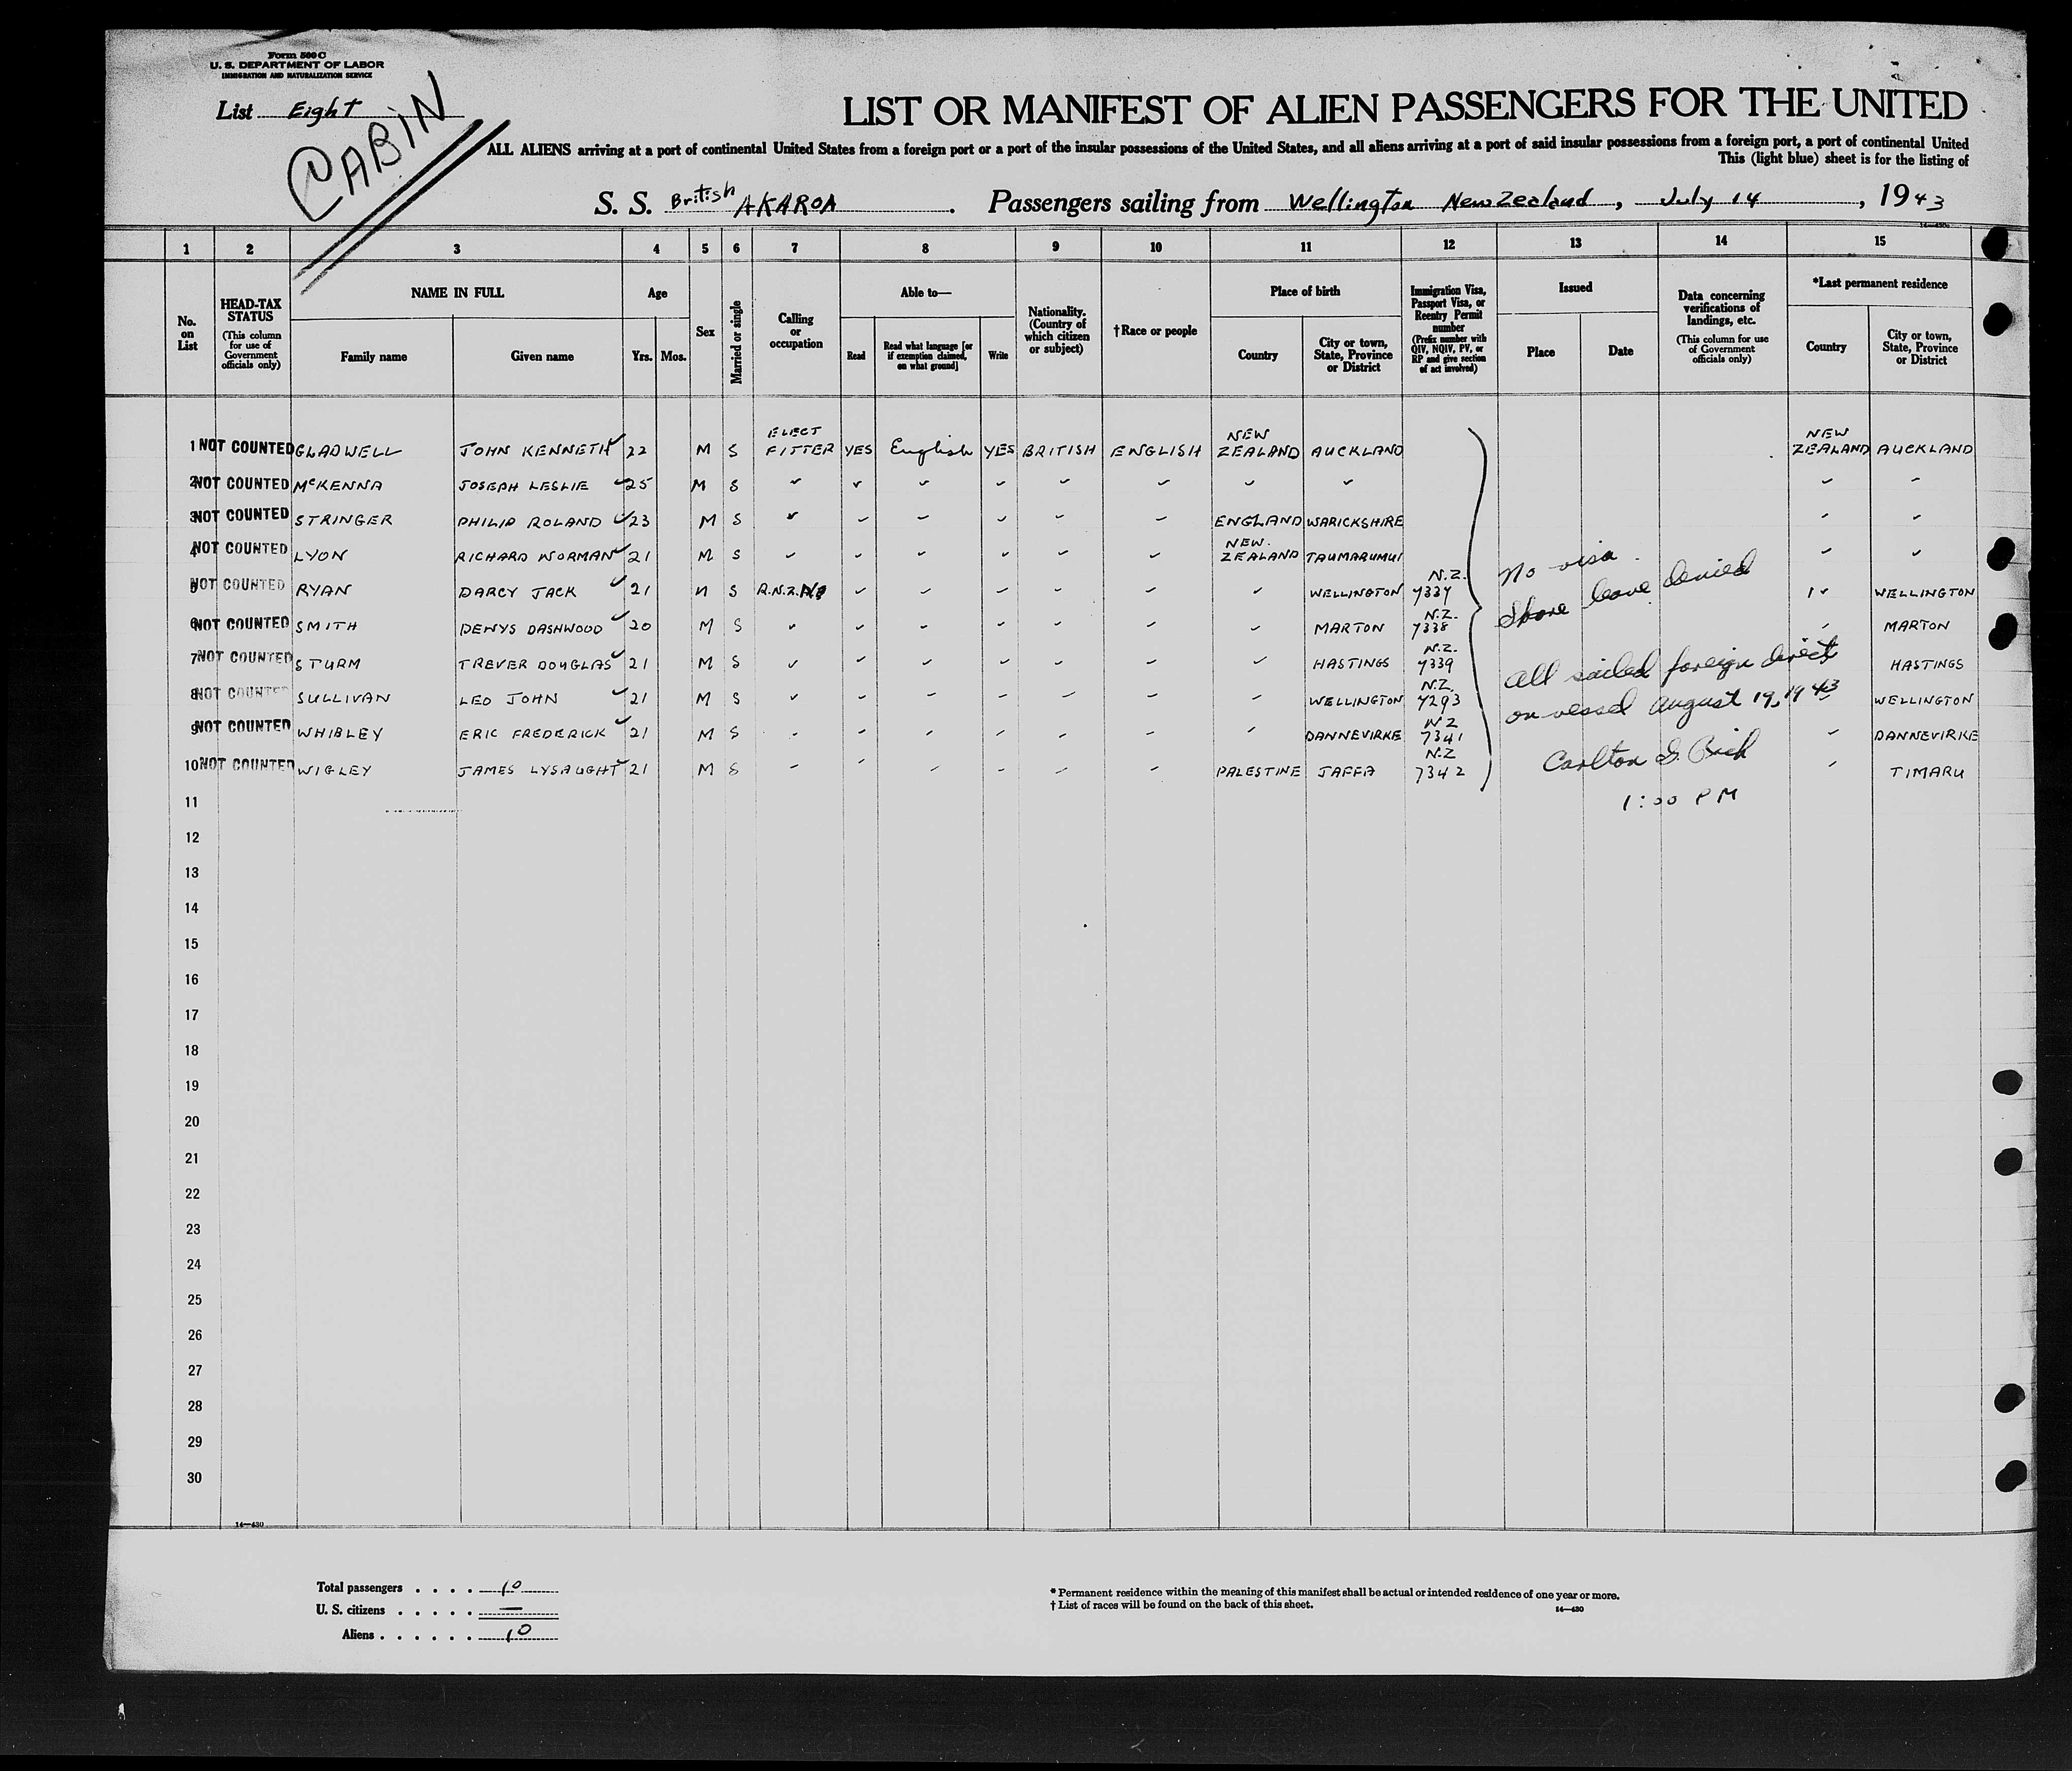 Form 500 C
U. S. DEPARTMENT OF LABOR
IMMIGRATION AND NATURALIZATION SERVICE
List Eight
CABIN
LIST OR MANIFEST OF ALIEN PASSENGERS FOR THE UNITED
ALL ALIENS arriving at a port of continental United States from a foreign port or a port of the insular possessions of the United States, and all aliens arriving at a port of said insular possessions from a foreign port, a port of continental United
This (light blue) sheet is for the listing of
S. S. British AKAROA . Passengers sailing from Wellington New Zealand , July 14 , 1943
1 2 3 4 5 6 7 8 9 10 11 12 13 14 15
No. on List
HEAD-TAX STATUS (This column for use of Government officials only)
NAME IN FULL
Family name Given name
Age
Yrs. Mos.
Sex
Married or single
Calling or occupation
Able to—
Read
Read what language [or if exemption claimed, on what ground]
Write
Nationality. (Country of which citizen or subject)
†Race or people
Place of birth
Country
City or town, State, Province or District
Immigration Visa, Passport Visa, or Reentry Permit number (Prefix number with QIV, NQIV, PV, or RP and give section of act involved)
Issued
Place Date
Data concerning verifications of landings, etc. (This column for use of Government officials only)
*Last permanent residence
Country
City or town, State, Province or District
1 NOT COUNTED GLADWELL JOHN KENNETH ✓ 22 M S ELECT FITTER YES English YES BRITISH ENGLISH NEW ZEALAND AUCKLAND NEW ZEALAND AUCKLAND
2 NOT COUNTED McKENNA JOSEPH LESLIE ✓ 25 M S ✓ ✓ ✓ ✓ ✓ ✓ ✓ ✓ ✓ ✓
3 NOT COUNTED STRINGER PHILIP ROLAND ✓ 23 M S ✓ ✓ ✓ ✓ ✓ ✓ ENGLAND WARICKSHIRE ✓ ✓
4 NOT COUNTED LYON RICHARD NORMAN ✓ 21 M S ✓ ✓ ✓ ✓ ✓ ✓ NEW. ZEALAND TAUMARUMUI ✓ ✓
5 NOT COUNTED RYAN DARCY JACK ✓ 21 M S R.N.Z. ✓ ✓ ✓ ✓ ✓ ✓ WELLINGTON N.Z. 7337 ✓ WELLINGTON
6 NOT COUNTED SMITH DENYS DASHWOOD ✓ 20 M S ✓ ✓ ✓ ✓ ✓ ✓ ✓ MARTON N.Z. 7338 ✓ MARTON
7 NOT COUNTED STURM TREVER DOUGLAS ✓ 21 M S ✓ ✓ ✓ ✓ ✓ ✓ ✓ HASTINGS N.Z. 7339 HASTINGS
8 NOT COUNTED SULLIVAN LEO JOHN ✓ 21 M S ✓ ✓ ✓ ✓ ✓ ✓ ✓ WELLINGTON N.Z. 7293 WELLINGTON
9 NOT COUNTED WHIBLEY ERIC FREDERICK ✓ 21 M S ✓ ✓ ✓ ✓ ✓ ✓ ✓ DANNEVIRKE N Z 7341 ✓ DANNEVIRKE
10 NOT COUNTED WIGLEY JAMES LYSAUGHT ✓ 21 M S ✓ ✓ ✓ ✓ ✓ ✓ PALESTINE JAFFA N.Z 7342 ✓ TIMARU
No visa.
Shore leave denied
All sailed foreign direct
on vessel August 19, 1943
Carlton
1:00 PM
11
12
13
14
15
16
17
18
19
20
21
22
23
24
25
26
27
28
29
30
14—430
Total passengers . . . . 10
U. S. citizens . . . . . —
Aliens . . . . . . 10
* Permanent residence within the meaning of this manifest shall be actual or intended residence of one year or more.
† List of races will be found on the back of this sheet.
14—430